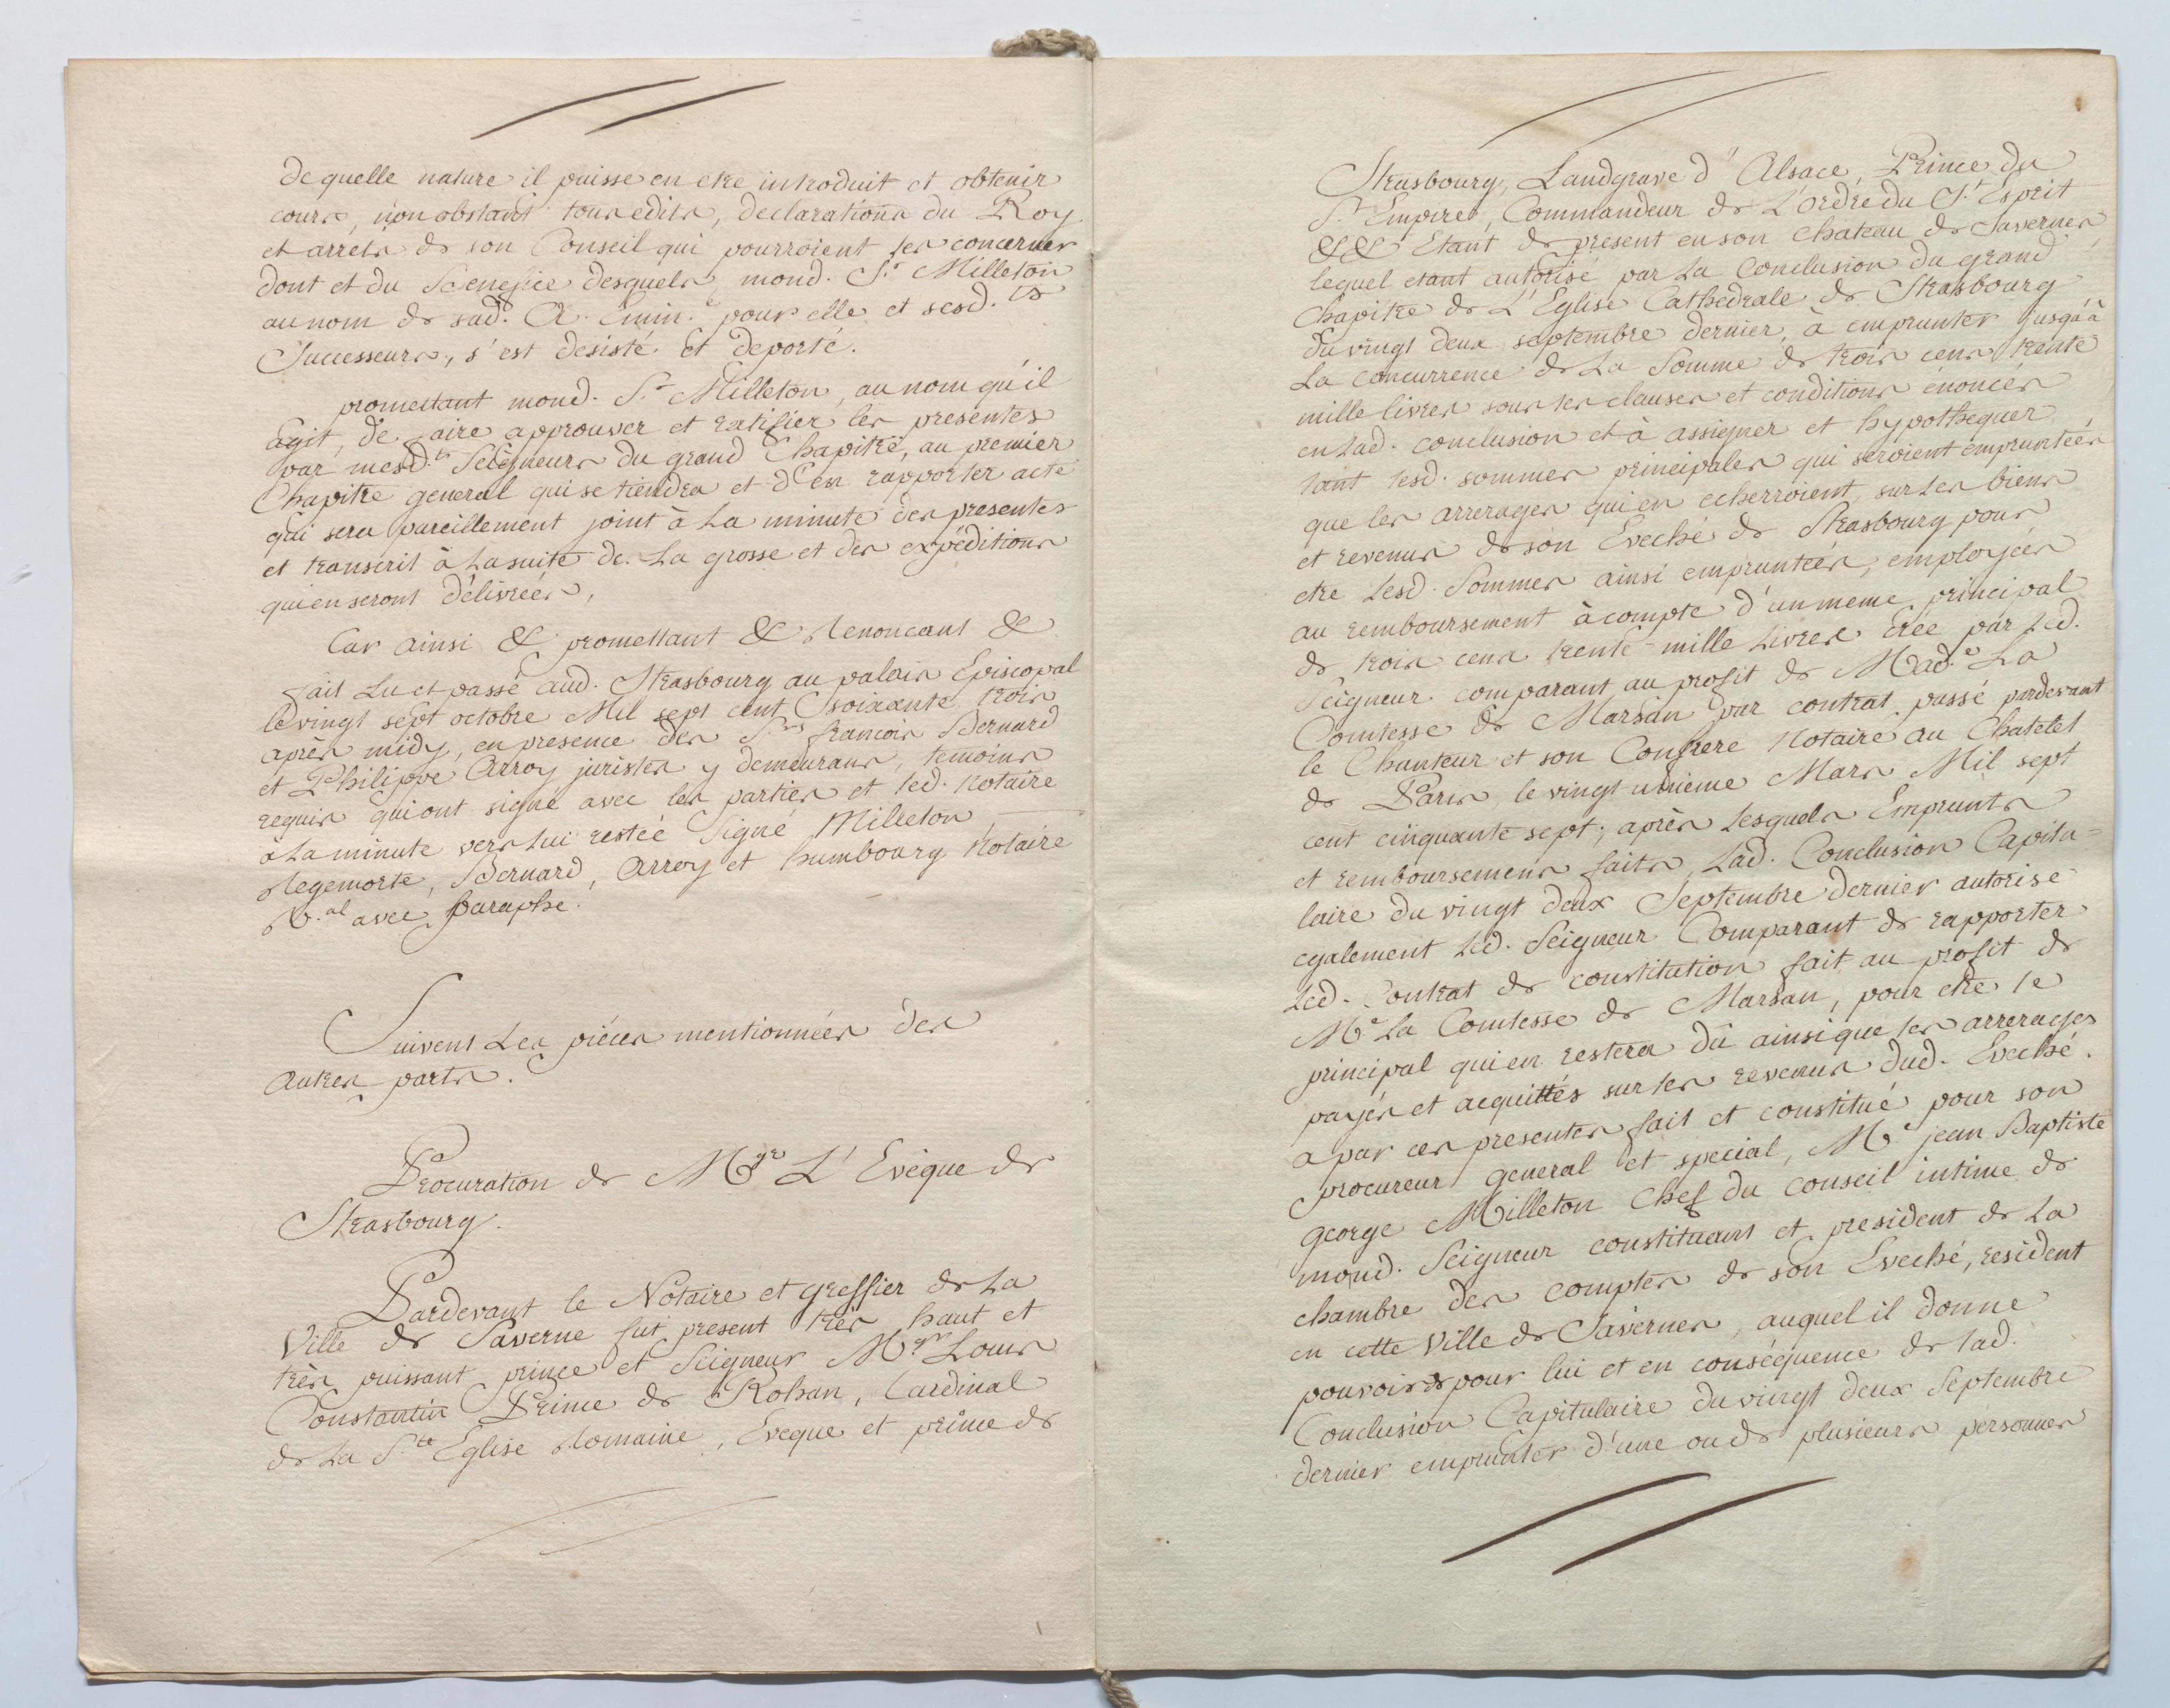 de quelle nature il puisse en etre introduit et obtenir
cours, non obstant tous edits, declarations du Roy
et arrets de son Conseil qui pourroient les concerner
dont et du Benefice desquels, mond. S.r Milleton
au nom de sad. A. Emin.e pour elle et sesd. ts
Successeurs, s'est desisté et deporté.
promettant mond. S.r Milleton, au nom qu'il
agit, de faire approuver et ratifier les presentes
par mesd.ts Seigneurs du grand Chapitre, au premier
Chapitre general qui se tiendra et d'en rapporter acte
qui sera pareillement joint à la minute des presentes
et transcrit à la suite de la grosse et des expéditions
qui en seront délivrées,
Car ainsi &c promettant &c Renoncant &c
fait Lu et passé aud. Strasbourg au palais Episcopal
le vingt sept octobre Mil sept cent Soixante trois
après midy, en presence des S.rs francois Bernard
et Philippe Arroy juristes y demeurans, temoins
requis qui ont signé avec les parties et led. Notaire
à la minute vers lui restée Signé Milleton
Regemorte, Bernard, Arroy et humbourg Notaire
R.al avec paraphe.
Suivent Les piéces mentionnées des
autres parts.
Procuration de M.gr L'Evêque de
Strasbourg.
Pardevant le Notaire et greffier de La
Ville de Saverne fut present très haut et
très puissant prince et Seigneur M.gr Louis
Constantin Prince de Rohan, Cardinal
de La S.te Eglise Romaine, Eveque et prince de
Strasbourg, Landgrave d'Alsace, Prince du
S.t Empire, Commandeur de L'ordre du S.t Esprit
&c&c Etant de present en son Chateau de Saverne
lequel etant autorisé par La Conclusion du grand
Chapitre de L'Eglise Cathedrale de Strasbourg
du vingt deux septembre dernier, à emprunter jusqu'à
La concurrence de La Somme de trois cens trente
mille livres sous les clauses et conditions énoncées
en Lad. conclusion et à assigner et hypothequer
tant lesd. sommes principales qui seroient empruntées
que les arrerages qui en echerroient, sur Les biens
et revenus de son Eveché de Strasbourg pour
etre Lesd. Sommes ainsi empruntées, employées
au remboursement à compte d'un meme principal
de trois cens trente mille Livres créé par Led.
Seigneur comparant au profit de Mad.e La
Comtesse de Marsan par contrat passé pardevant
le Chanteur et son Confrere Notaire au Chatelet
de Paris, le vingt unieme Mars Mil sept
cent cinquante sept; après Lesquels Emprunts
et remboursemens faits, Lad. Conclusion Capitu=
laire du vingt deux Septembre dernier autorise
egalement Led. Seigneur Comparant de rapporter
Led. Contrat de constitution fait au profit de
M.e La Comtesse de Marsan, pour etre le
principal qui en restera dû ainsi que les arrerages
payés et acquittés sur les revenus dud. Eveché.
a par ces presentes fait et constitué pour son
procureur general et special, M.e jean Baptiste
george Milleton Chef du Conseil intime de
mond. Seigneur constituant et president de La
chambre des comptes de son Eveché, resident
en cette Ville de Saverne, auquel il donne
pouvoir de pour lui et en conséquence de lad.
Conclusion Capitulaire du vingt deux Septembre
dernier emprunter d'une ou de plusieurs personnes